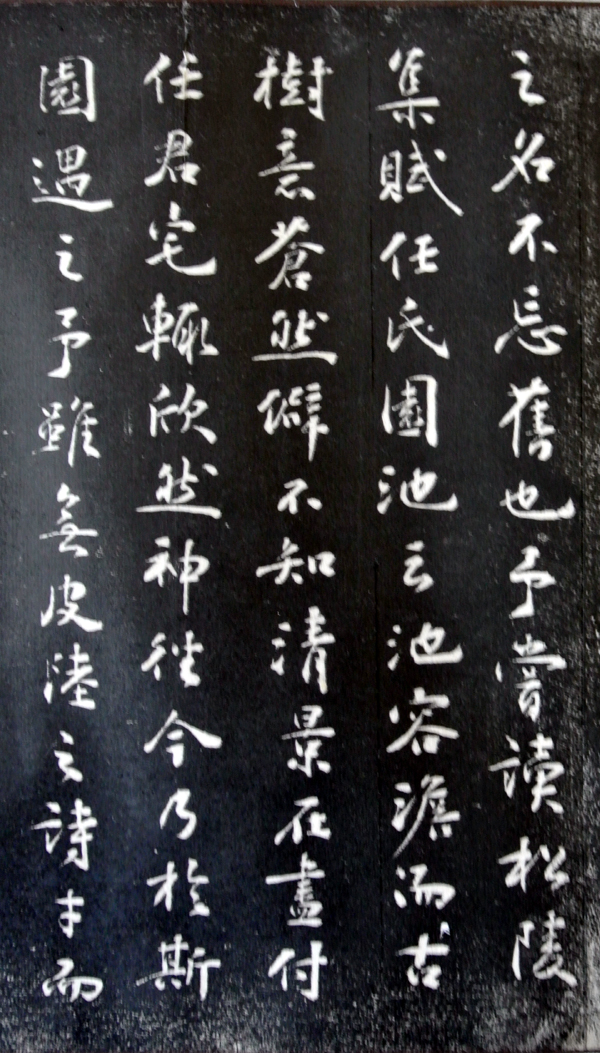 之名不忘舊也予嘗讀松陵
集賦任氏園池云池容澹而古
樹意蒼然僻不知清景在盡付
任君宅輒欣然神往今乃於斯
園遇之予雖無皮陸之詩才而